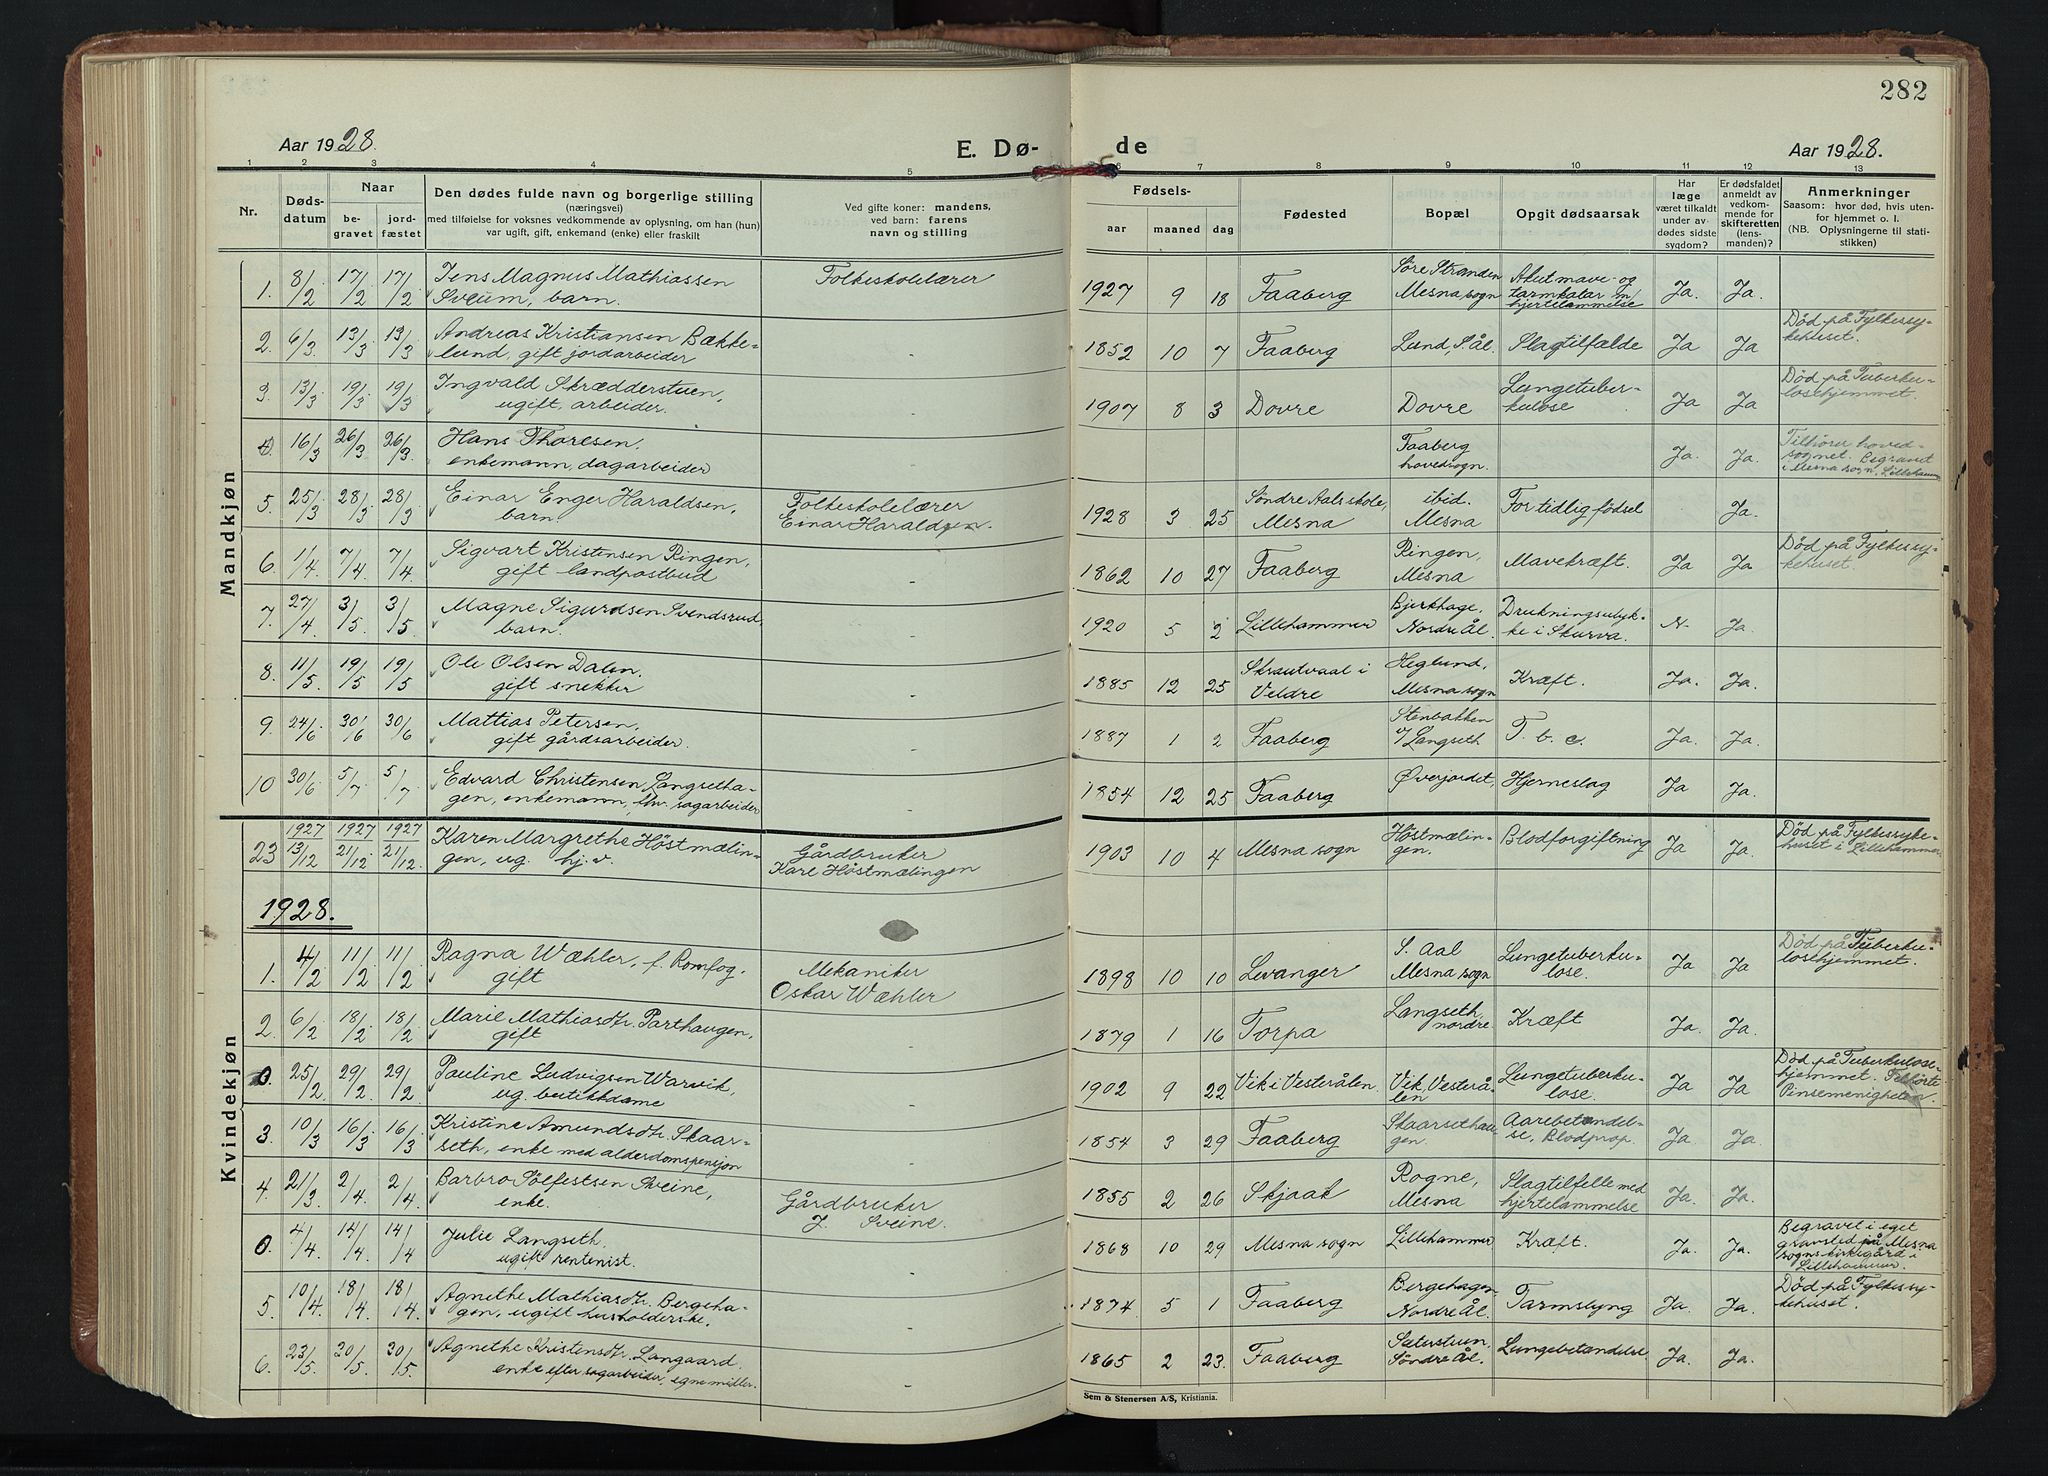 282
Aar 1928.
E. Dø-
de
Aar 1928.
1 2 3 4 5 6 7 8 9 10 11 12 13
Nr.
Døds-
datum
Naar
be-
gravet
jord-
fæstet
Den dødes fulde navn og borgerlige stilling
(næringsvei)
med tilføielse for voksnes vedkommende av oplysning, om han (hun)
var ugift, gift, enkemand (enke) eller fraskilt
Ved gifte koner: mandens,
ved barn: farens
navn og stilling
Fødsels-
aar
maaned
dag
Fødested
Bopæl
Opgit dødsaarsak
Har
læge
været tilkaldt
under av-
dødes sidste
sygdom?
Er dødsfaldet
anmeldt av
vedkom-
mende for
skifteretten
(lens-
manden)?
Anmerkninger
Saasom: hvor død, hvis uten-
for hjemmet o. l.
(NB. Oplysningerne til stati-
stikken)
Mandkjøn
1. 8/2 17/2 17/2 Jens Magnus Mathiassen
Sveum, barn.
Folkeskolelærer
1927 9 18 Faaberg
Søre Stranden
Mesna sogn
Akut mave- og
tarmkatar m/
hjertelammelse
Ja. Ja.
2. 6/3 13/3 13/3 Andreas Kristiansen Bække-
lund, gift jordarbeider
-
1852 10 7 Faaberg
Lund, S. Ål.
Slagtilfælde
Ja Ja
Død på Fylkessy-
kehuset.
3. 13/3 19/3 19/3 Ingvald Skrædderstuen,
ugift, arbeider.
-
1907 8 3 Dovre
Dovre
Lungetuber-
kulose
Ja Ja
Død på Tuberku-
losehjemmet.
0. 16/3 26/3 26/3 Hans Thoresen,
enkemann, dagarbeider
Faaberg
hovedsogn.
Ja. Ja.
Tilhører hoved-
sognet. Begravet
i Mesna sogn, Lillehamm
5. 25/3 28/3 28/3 Einar Enger Haraldsen,
barn.
Folkeskolelærer
Einar Haraldsen.
1928 3 25 Søndre Aals skole,
Mesna
ibid.
Mesna
For tidlig fødsel
Ja.
6. 1/4 7/4 7/4 Sigvart Kristensen Ringen,
gift landpostbud
-
1862 10 27 Faaberg
Ringen,
Mesna
Mavekræft.
Ja Ja
Død på Fylkessy-
kehuset.
7. 27/4 3/5 3/5 Magne Sigurdsen Svendsrud,
barn.
-
1920 5 2 Lillehammer
Bjerkhage,
Nordre Ål.
Drukningsulyk-
ke i Skurva.
N- Ja.
8. 11/5 19/5 19/5 Ole Olsen Dalen,
gift snekker
-
1885 12 25 Skrautvaal i
Veldre
Heglund,
Mesna sogn
Kræft.
Ja. Ja.
9. 24/6 30/6 30/6 Mattias Petersen,
gift gårdsarbeider.
-
1887 1 2 Faaberg
Stenbakken
u/ Langseth
T. b. c.
Ja. Ja.
10 30/6 5/7 5/7 Edvard Christensen Langsetha-
gen, enkemann, fhv. sagarbeider
1854 12 25 Faaberg
Øverjordet,
Hjerneslag
Ja Ja.
Kvindekjøn
23 1927 13/12 1927 21/12 1927 21/12 Karen Margrethe Höstmælin-
gen, ug. hj.v.
Gårdbruker
Karl Höstmælingen
1903 10 4 Mesna sogn
Höstmælin-
gen.
Blodforgiftning
Ja Ja.
Død på Fylkessyke-
huset i Lillehammer
1928.
1. 4/2 11/2 11/2 Ragna Wæhler, f. Romfog.
gift
Mekaniker
Oskar Wæhler
1898 10 10 Levanger
S. Aal
Mesna sogn
Lungetuberku-
lose.
Ja Ja
Død på Tuberku-
losehjemmet.
2. 6/2 18/2 18/2 Marie Mathiasdtr. Parthaugen,
gift
-
1879 1 16 Torpa
Langseth
nordre.
Kræft
Ja. Ja.
0. 25/2 29/2 29/2 Pauline Ludvigsen Warvik,
ug. butikkdame
-
1902 9 22 Vik i Vesterålen.
Vik, Vesterå-
len
Lungetuberku-
lose.
Ja Ja
Død på Tuberkulose-
hjemmet. Tilhørte
Pinsemenigheten.
3. 10/3 16/3 16/3 Kristine Amundsdtr. Skaar-
seth, enke med alderdomspensjon
-
1854 3 29 Faaberg
Skaarsethau-
gen.
Aarebetendel-
se, Blodprop.
Ja. Ja.
4. 21/3 2/4 2/4 Barbro Sölfestsen Sveine,
enke.
Gårdbruker
J. Sveine.
1855 2 26 Skjaak
Rogne,
Mesna
Slagtilfelle med
hjertelammelse
Ja. Ja.
0. 4/4 14/4 14/4 Julie Langseth.
ugift rentenist.
1868 10 29 Mesna sogn
Lillehammer
Kræft.
Ja. Ja.
Begravet i eget
gravsted på Mesna
sogns kirkegård i
Lillehammer.
5 10/4 18/4 18/4 Agnethe Mathiasdtr. Bergeha-
gen, ugift husholderske.
-
1874 5 1 Faaberg
Bergehagen
Nordre Ål.
Tarmslyng
Ja. Ja.
Død på Fylkessy-
kehuset.
6. 23/5 30/5 30/5 Agnethe Kristensdtr. Langaard.
enke efter sagarbeider, egne midler.
-
1865 2 23. Faaberg
Sæterstuen,
Søndre Ål.
Lungebetendelse.
Ja. Ja.
Sem & Stenersen A/S, Kristiania.